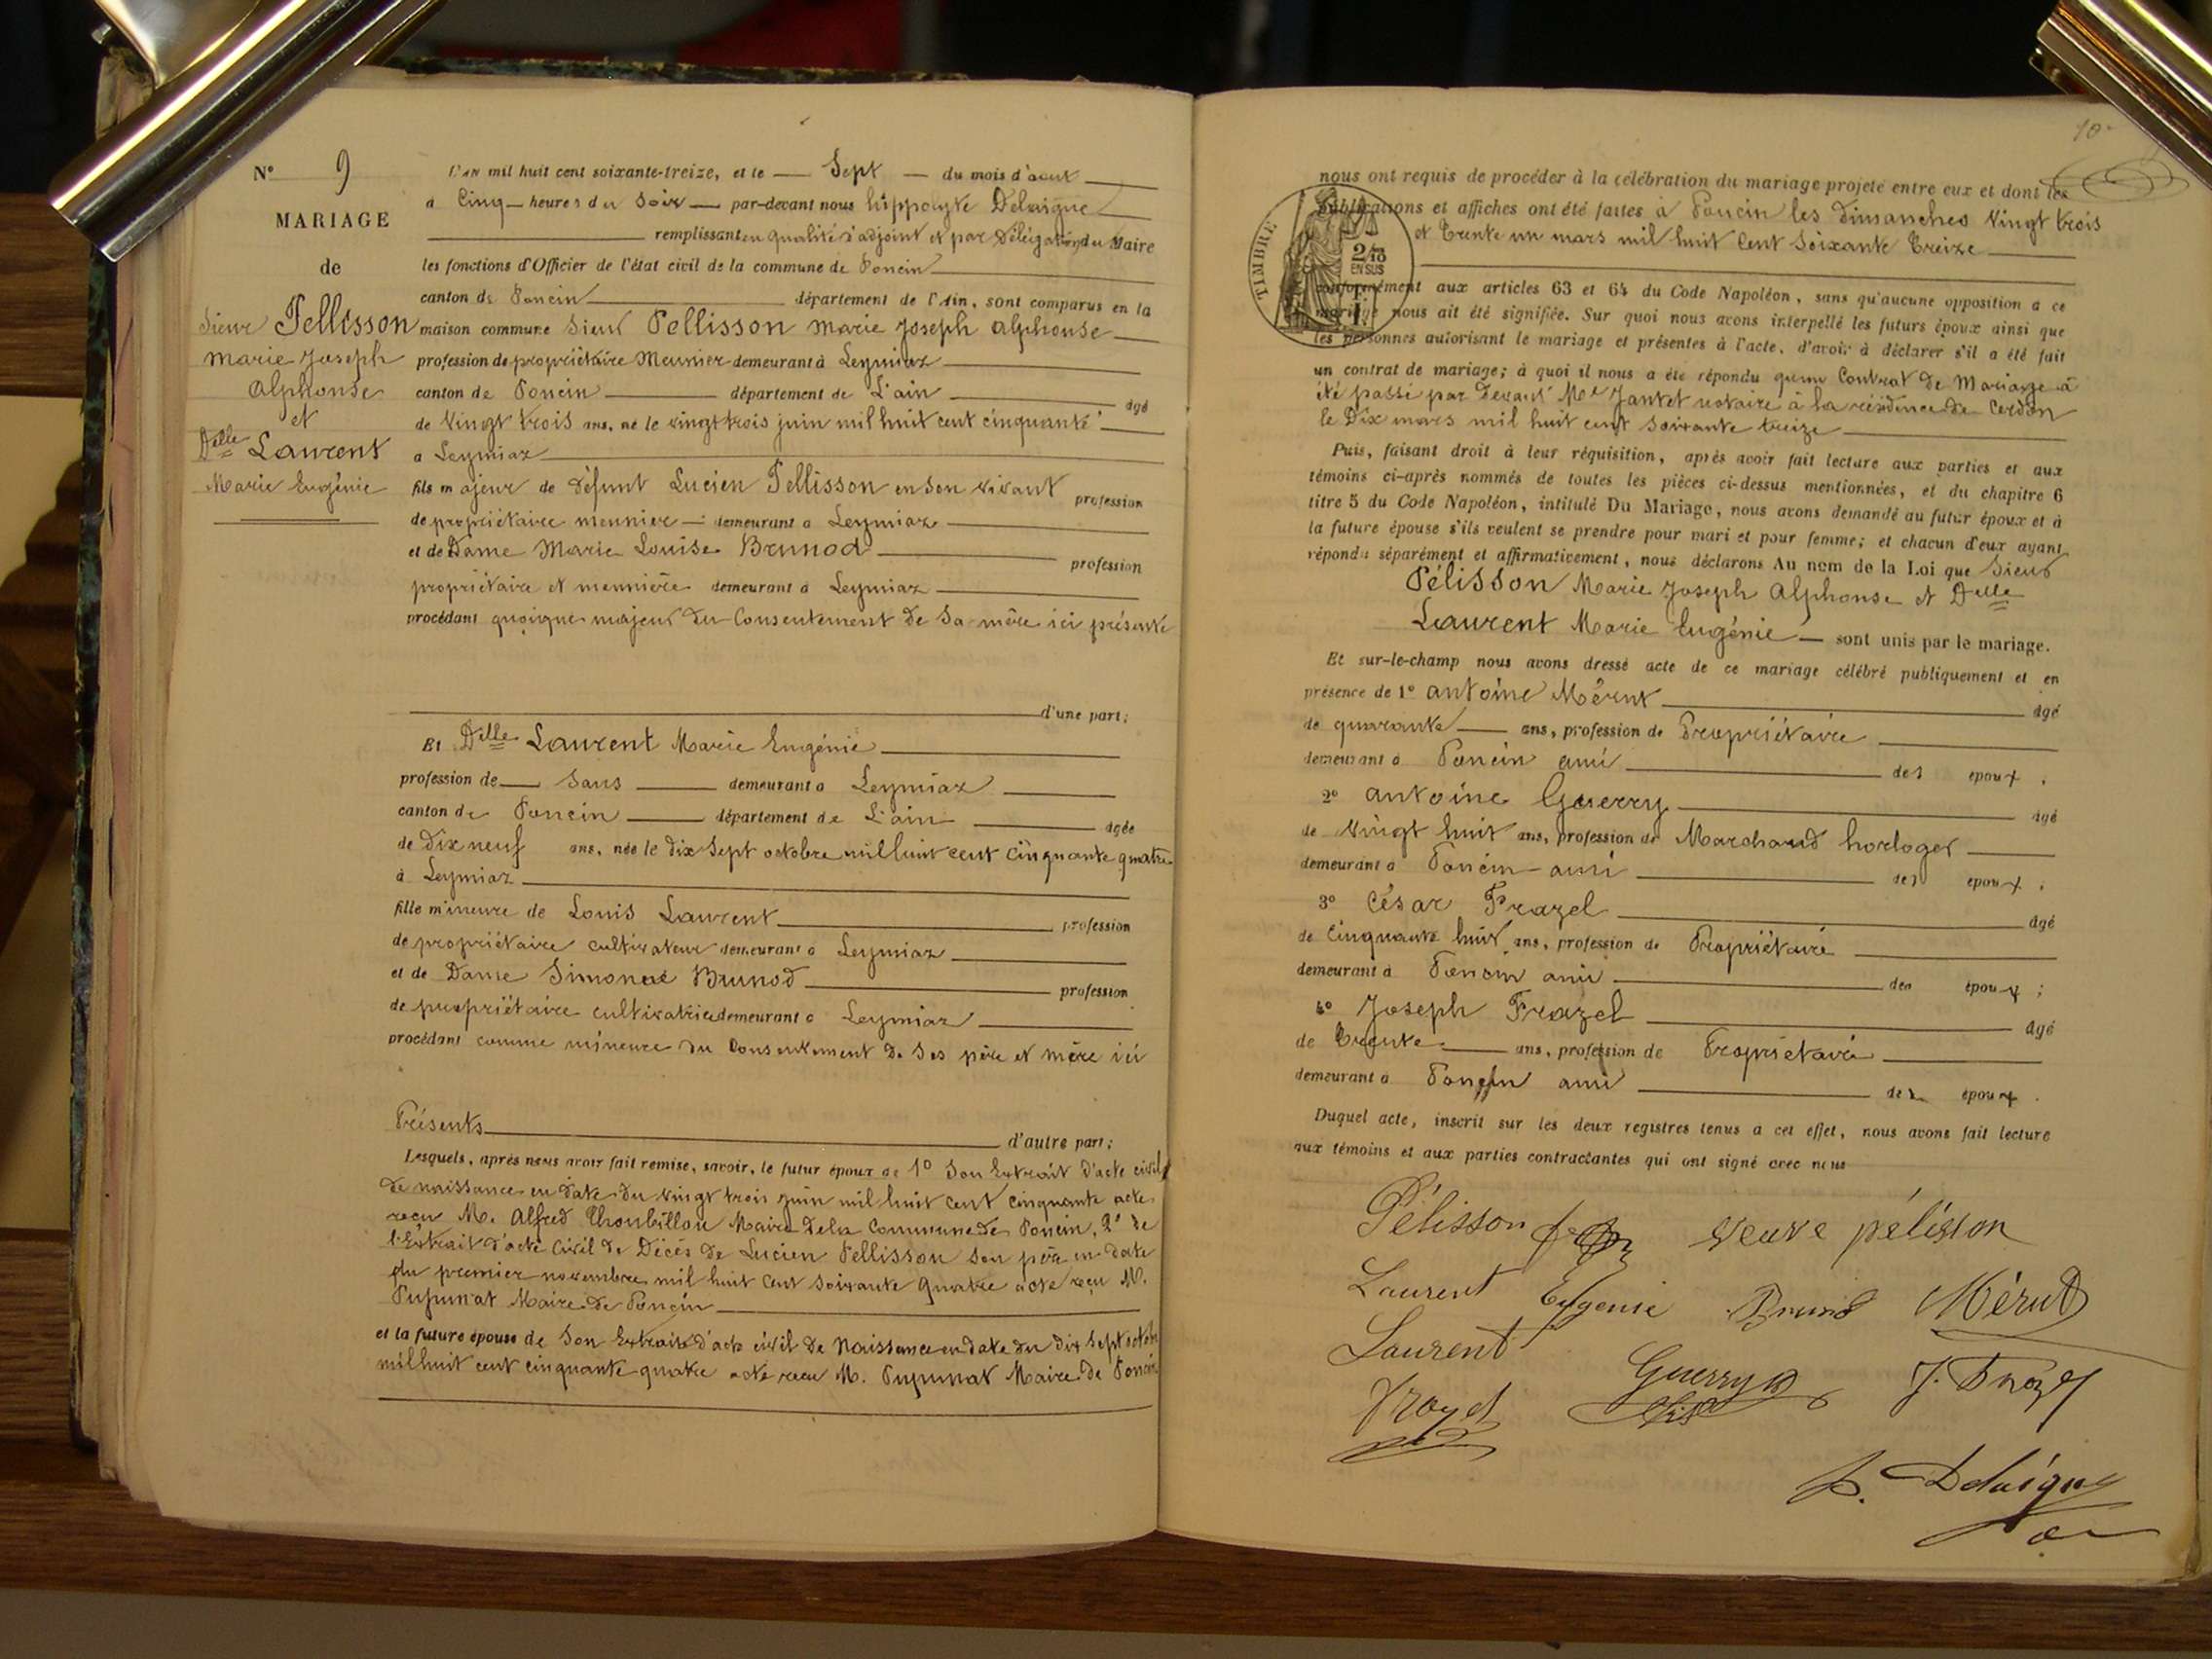 N° 9
MARIAGE
de
Sieur Pellisson
Marie Joseph
Alphonse
et
Delle Laurent
Marie Eugénie
L'AN mil huit cent soixante-treize, et le Sept du mois d'aout
à Cinq heures du Soir par-devant nous hippolyte Delaigue
remplissant en qualité d'adjoint et par Délégation du Maire
les fonctions d'Officier de l'état civil de la commune de Poncin
canton de Poncin département de l'Ain, sont comparus en la
maison commune Sieur Pellisson Marie Joseph Alphonse
profession de propriétaire Meunier demeurant à Leymiaz
canton de Poncin département de L'ain âgé
de Vingt trois ans, né le vingt trois juin mil huit cent cinquante
a Leymiaz
fils majeur de défunt Lucien Pellisson en son vivant profession
de propriétaire meunier demeurant à Leymiaz
et de Dame Marie Louise Brunod profession
propriétaire et meunière demeurant à Leymiaz
procédant quoique majeur du Consentement de Sa mère ici présente
d'une part;
Et Delle Laurent Marie Eugénie
profession de Sans demeurant à Leymiaz
canton de Poncin département de L'ain âgée
de dix neuf ans, née le dix Sept octobre mil huit cent cinquante quatre
à Leymiaz
fille mineure de Louis Laurent profession
de propriétaire cultivateur demeurant à Leymiaz
et de Dame Brunod profession
de propriétaire cultivatrice demeurant à Leymiaz
procédant comme mineure du Consentement de Ses père et mère ici
Présents d'autre part;
Lesquels, après nous avoir fait remise, savoir, le futur époux de 1° Son Extrait d'acte civil
de naissance en date du vingt trois juin mil huit cent cinquante acte
reçu M. Alfred Maire de la Commune de Poncin, 2° de
l'Extrait d'acte Civil de Décès de Lucien Pellisson Son père en date
du premier novembre mil huit cent soixante quatre acte reçu M.
Pupunat Maire de Poncin
et la future épouse de Son Extrait d'acte civil de Naissance en date du dix Sept octobre
mil huit cent cinquante quatre acte reçu M. Pupunat Maire de Poncin
10
nous ont requis de procéder à la célébration du mariage projeté entre eux et dont les
publications et affiches ont été faites à Poncin les dimanches Vingt trois
et Trente un mars mil huit Cent Soixante Treize
TIMBRE
2/10
EN SUS
conformément aux articles 63 et 64 du Code Napoléon, sans qu'aucune opposition à ce
mariage nous ait été signifiée. Sur quoi nous avons interpellé les futurs époux ainsi que
les personnes autorisant le mariage et présentes à l'acte, d'avoir à déclarer s'il a été fait
un contrat de mariage; à quoi il nous a été répondu qu'un Contrat de Mariage a
été passé par Devant Me Jantet notaire à la résidence de Cerdon
le Dix mars mil huit cent soixante treize
Puis, faisant droit à leur réquisition, après avoir fait lecture aux parties et aux
témoins ci-après nommés de toutes les pièces ci-dessus mentionnées, et du chapitre 6
titre 5 du Code Napoléon, intitulé Du Mariage, nous avons demandé au futur époux et à
la future épouse s'ils veulent se prendre pour mari et pour femme; et chacun d'eux ayant
répondu séparément et affirmativement, nous déclarons Au nom de la Loi que Sieur
Pélisson Marie Joseph Alphonse et Delle
Laurent Marie Eugénie sont unis par le mariage.
Et sur-le-champ nous avons dressé acte de ce mariage célébré publiquement et en
présence de 1° Antoine Mérut âgé
de quarante ans, profession de Propriétaire
demeurant à Poncin ami des époux.
2° Antoine Guerry âgé
de Vingt huit ans, profession de Marchand horloger
demeurant à Poncin ami des époux.
3° César Frazel âgé
de Cinquante huit ans, profession de Propriétaire
demeurant à Poncin ami des époux;
4° Joseph Frazel âgé
de Trente ans, profession de Propriétaire
demeurant à Poncin ami des époux.
Duquel acte, inscrit sur les deux registres tenus à cet effet, nous avons fait lecture
aux témoins et aux parties contractantes qui ont signé avec nous
Pélisson veuve pélisson
Laurent Eugenie Brunod Mérut
Laurent Guerry J. Frazel
Frazel
Delaigue